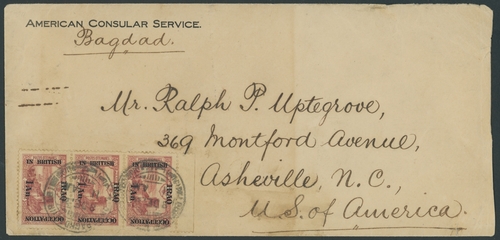 AMERICAN CONSULAR SERVICE.
Bagdad.
Mr. Ralph P. Uptegrove,
369 Montford Avenue,
Asheville, N.C.,
U.S. of America.
IRAQ IN BRITISH OCCUPATION 1 An.
IRAQ IN BRITISH OCCUPATION 1 An.
IRAQ IN BRITISH OCCUPATION 1 An.